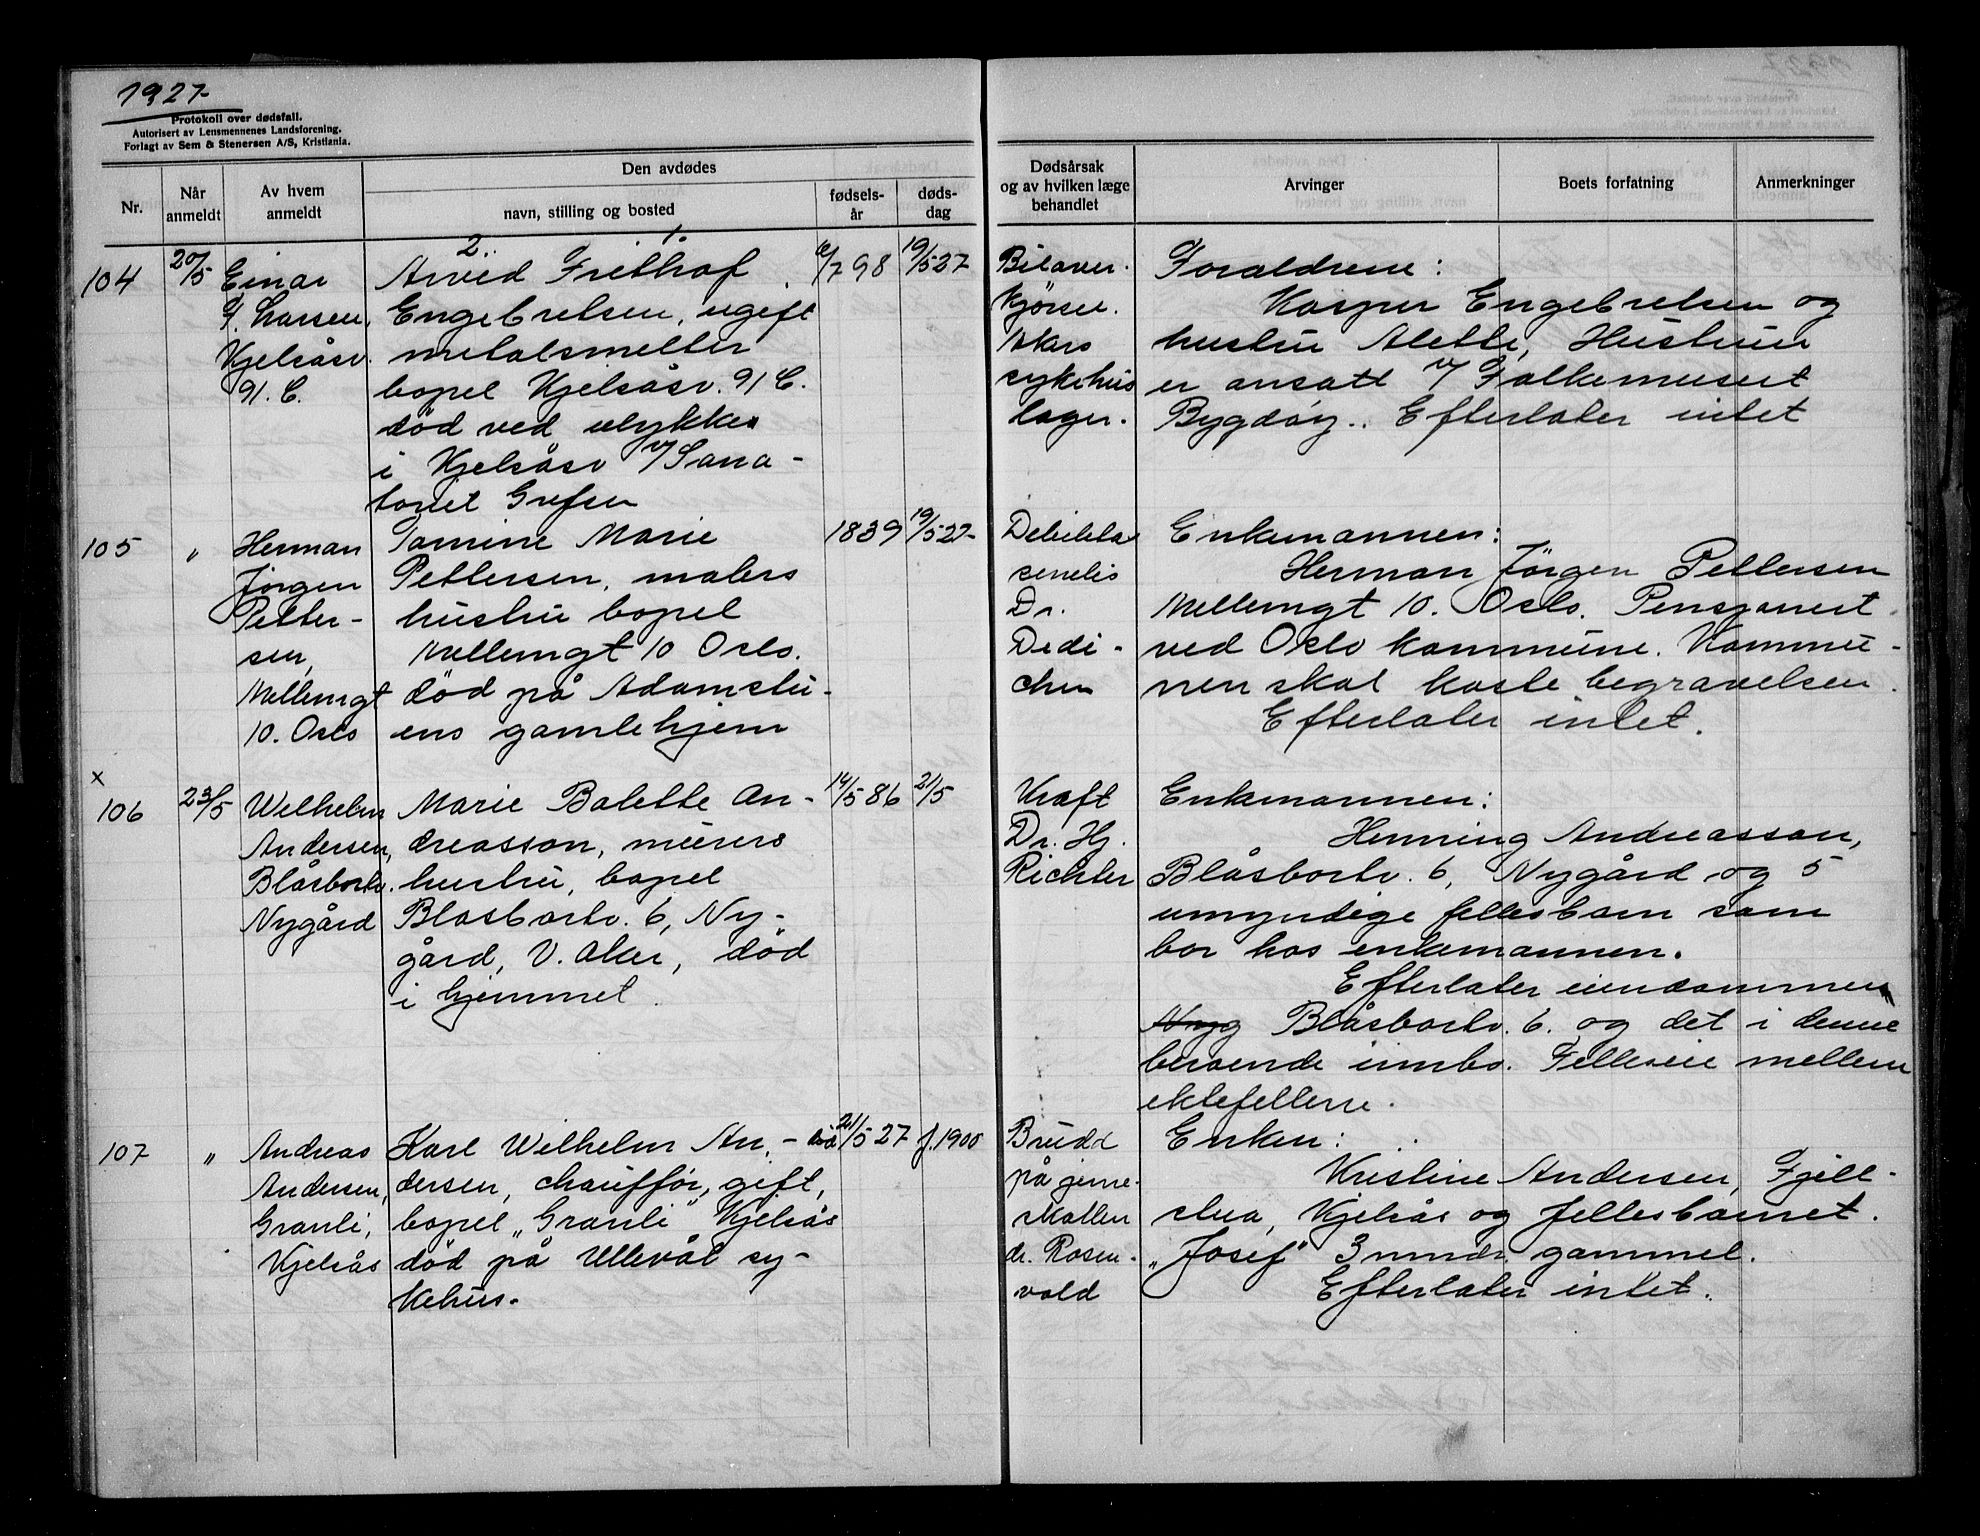 1927
Protokoll over dødsfall.
Autorisert av Lensmennenes Landsforening.
Forlagt av Sem & Stenersen A/S, Kristiania.
Nr.
Når anmeldt
Av hvem anmeldt
Den avdødes
navn, stilling og bosted
fødsels-år
døds-dag
Dødsårsak og av hvilken læge behandlet
Arvinger
Boets forfatning
Anmerkninger
104
20/5
Einar
Larsen,
Kjelsåsv.
91. C.
2. 1.
Arvid Frithof
Engebretsen, ugift
metalsmelter
bopel Kjelsåsv. 91 C.
død ved ulykke
i Kjelsåsv v/ Sana-
toriet Grefsen
6/7 98
19/5 27
Bilover-
kjørsel.
Akers
sykehus
læger.
Foraldrene:
Kasper Engebretsen og
hustru Alette, Hustruen
er ansatt v/ Folkemuseet
Bygdøy. Efterlater intet
105
"
Herman
Jørgen
Petter-
sen,
Mellemgt
10. Oslo
Tomine Marie
Pettersen, malers
hustru bopel
Mellemgt 10 Oslo.
død på Adamstu-
ens gamlehjem
1839
19/5 27-
Debilitas
senelis
Dr.
Dedi-
chen
Enkemannen:
Herman Jørgen Pettersen
Mellemgt 10. Oslo. Pensjonert
ved Oslo kommune. Kommu-
nen skal koste begravelsen.
Efterlater intet.
x
106
23/5
Wilhelm
Andersen,
Blåsbortv.
Nygård
Marie Balette An-
dreasson, murers
hustru, bopel
Blåsbortv. 6, Ny-
gård, V. Aker, død
i hjemmet.
14/5 86
21/5
Kraft
Dr. Hj.
Richter
Enkemannen:
Henning Andreasson,
Blåsbortv. 6, Nygård og 5
umyndige fellesbarn som
bor hos enkemannen.
Efterlater eiendommen
Nyg Blåsbortv. 6. og det i denne
beroende innbo. Felleseie mellem
ektefellene.
107
"
Andreas
Andersen,
Granli,
Kjelsås
Karl Wilhelm An-
dersen, chauffør, gift,
bopel "Granli" Kjelsås
død på Ullevål sy-
kehus.
død 21/5 27
f. 1900
Brudd
på hjerne-
skallen
dr. Rosen-
vold
Enken:
Kristine Andersen, Fjell-
stua, Kjelsås og fellesbarnet.
"Josef" 3 mndr. gammel.
Efterlater intet.